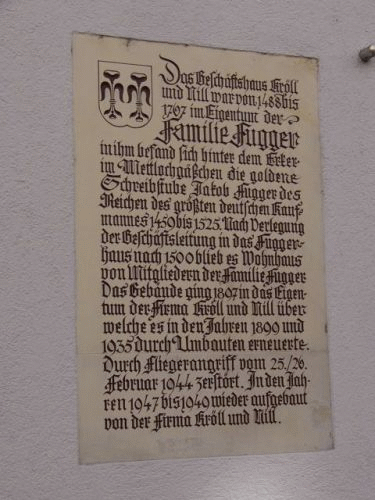 Das Geschäftshaus Kröll
und Nill war von 1488 bis
1797 im Eigentum der
Familie Fugger
in ihm befand sich hinter dem Erker
im Mettlochgäßchen die goldene
Schreibstube Jakob Fugger des
Reichen des größten deutschen Kauf-
mannes 1459 bis 1525. Nach Verlegung
der Geschäftsleitung in das Fugger-
haus nach 1500 blieb es Wohnhaus
von Mitgliedern der Familie Fugger
Das Gebäude ging 1897 in das Eigen-
tum der Firma Kröll und Nill über
welche es in den Jahren 1899 und
1935 durch Umbauten erneuerte.
Durch Fliegerangriff vom 25./26.
Februar 1944 zerstört. In den Jah-
ren 1947 bis 1949 wieder aufgebaut
von der Firma Kröll und Nill.